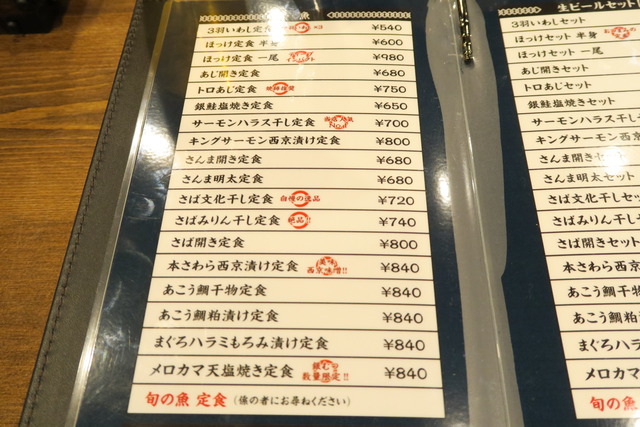 魚
3羽いわし定食 ¥540
ほっけ定食 半身 ¥600
ほっけ定食 一尾 ¥980
あじ開き定食 ¥680
トロあじ定食 ¥750
銀鮭塩焼き定食 ¥650
サーモンハラス干し定食 ¥700
キングサーモン西京漬け定食 ¥800
さんま開き定食 ¥680
さんま明太定食 ¥680
さば文化干し定食 自慢の逸品 ¥720
さばみりん干し定食 絶品!! ¥740
さば開き定食 ¥800
本さわら西京漬け定食 美味 西京味噌!! ¥840
あこう鯛干物定食 ¥840
あこう鯛粕漬け定食 ¥840
まぐろハラミもろみ漬け定食 ¥840
メロカマ天塩焼き定食 数量限定!! ¥840
旬の魚 定食 (係の者にお尋ねください)
生ビールセット
3羽いわしセット
ほっけセット 半身
ほっけセット 一尾
あじ開きセット
トロあじセット
銀鮭塩焼きセット
サーモンハラス干し
キングサーモン西京
さんま開きセット
さんま明太セット
さば文化干しセット
さばみりん干しセ
さば開きセット
本さわら西京漬け
あこう鯛干物
あこう鯛粕漬
まぐろハラミ
メロカマ天塩
旬の魚